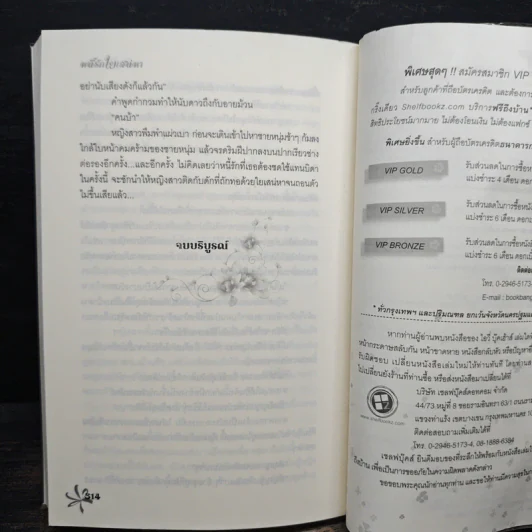 หนี้รักใยเสน่หา
อย่านับเสียงดังก็แล้วกัน"
คำพูดกำกวมทำให้นับดาวถึงกับอายม้วน
"คนบ้า"
หญิงสาวพึมพำแผ่วเบา ก่อนจะเดินเข้าไปหาชายหนุ่มช้าๆ ก้มลง
ใกล้ใบหน้าคมคร้ามของชายหนุ่ม แล้วจรดริมฝีปากลงบนปากเรียวช่าง
ต่อรองอีกครั้ง...และอีกครั้ง ไม่คิดเลยว่าหนี้รักที่เธอต้องชดใช้แทนบิดา
ในครั้งนี้ จะชักนำให้หญิงสาวติดกับดักที่ถักทอด้วยใยเสน่หาจนถอนตัว
ไม่ขึ้นเสียแล้ว...
จบบริบูรณ์
314
พิเศษสุดๆ !! สมัครสมาชิก VIP
สำหรับลูกค้าที่ถือบัตรเครดิต และต้องการ
ครั้งเดียว Shelfbookz.com บริการฟรีถึงบ้าน*
สิทธิประโยชน์มากมาย ไม่ต้องโอนเงิน ไม่ต้องแฟกซ์
พิเศษยิ่งขึ้น สำหรับผู้ถือบัตรเครดิตธนาคาร
VIP GOLD
รับส่วนลดในการซื้อ
แบ่งชำระ 4 เดือน ดอก
VIP SILVER
รับส่วนลดในการซื้อหนัง
แบ่งชำระ 6 เดือน ดอก
VIP BRONZE
รับส่วนลดในการซื้อหนัง
แบ่งชำระ 6 เดือน ดอกเบี้
ติดต่อ
โทร. 0-2946-5173-
E-mail : bookbang
* ทั่วกรุงเทพฯ และปริมณฑล ยกเว้นจังหวัดนครปฐมและ
หากท่านผู้อ่านพบหนังสือของ ไอวี่ บุ๊คเฮ้าส์ เล่มใด
หน้ากระดาษสลับกัน หน้าขาดหาย หนังสือกลับหัว หรือปัญหา
รับผิดชอบ เปลี่ยนหนังสือเล่มใหม่ให้ท่านทันที โดยท่าน
ไปเปลี่ยนยังร้านที่ท่านซื้อ หรือส่งหนังสือมาเปลี่ยนได้ที่
บริษัท เชลฟ์บุ๊คส์ดอทคอม จำกัด
44/73 หมู่ที่ 8 ซอยรามอินทรา 63/1 ถนนราม
แขวงท่าแร้ง เขตบางเขน กรุงเทพมหานคร 10
ติดต่อสอบถามเพิ่มเติมได้ที่
โทร. 0-2946-5173-4, 08-1888-
เชลฟ์บุ๊คส์ ยินดีมอบของที่ระลึกให้พร้อมกับหนังสือเล่มใหม่
ถึงบ้าน เพื่อเป็นการขออภัยในความผิดพลาดดังกล่าว
ขอขอบพระคุณนักอ่านทุกท่าน และขอให้ท่านมีความสุขในการ